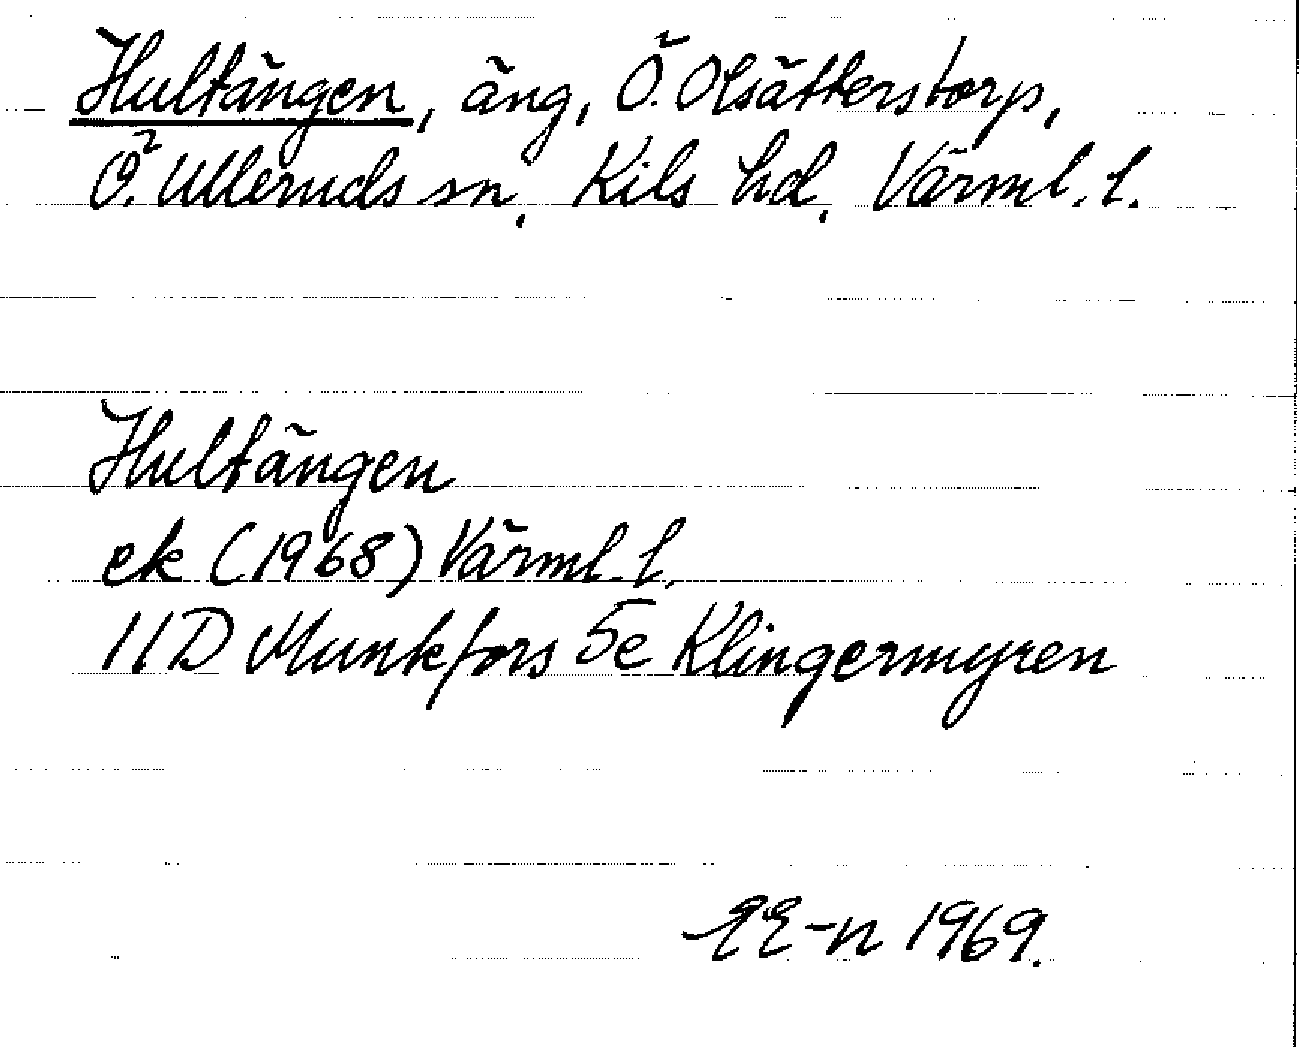 Hultängen, äng, Ö. Olsätterstorp,
Ö. Ulleruds sn, Kils hd, Värml. l.
Hultängen
ek (1968) Värml. l.
11D Munkfors 5e Klingermyren
EE-n 1969.